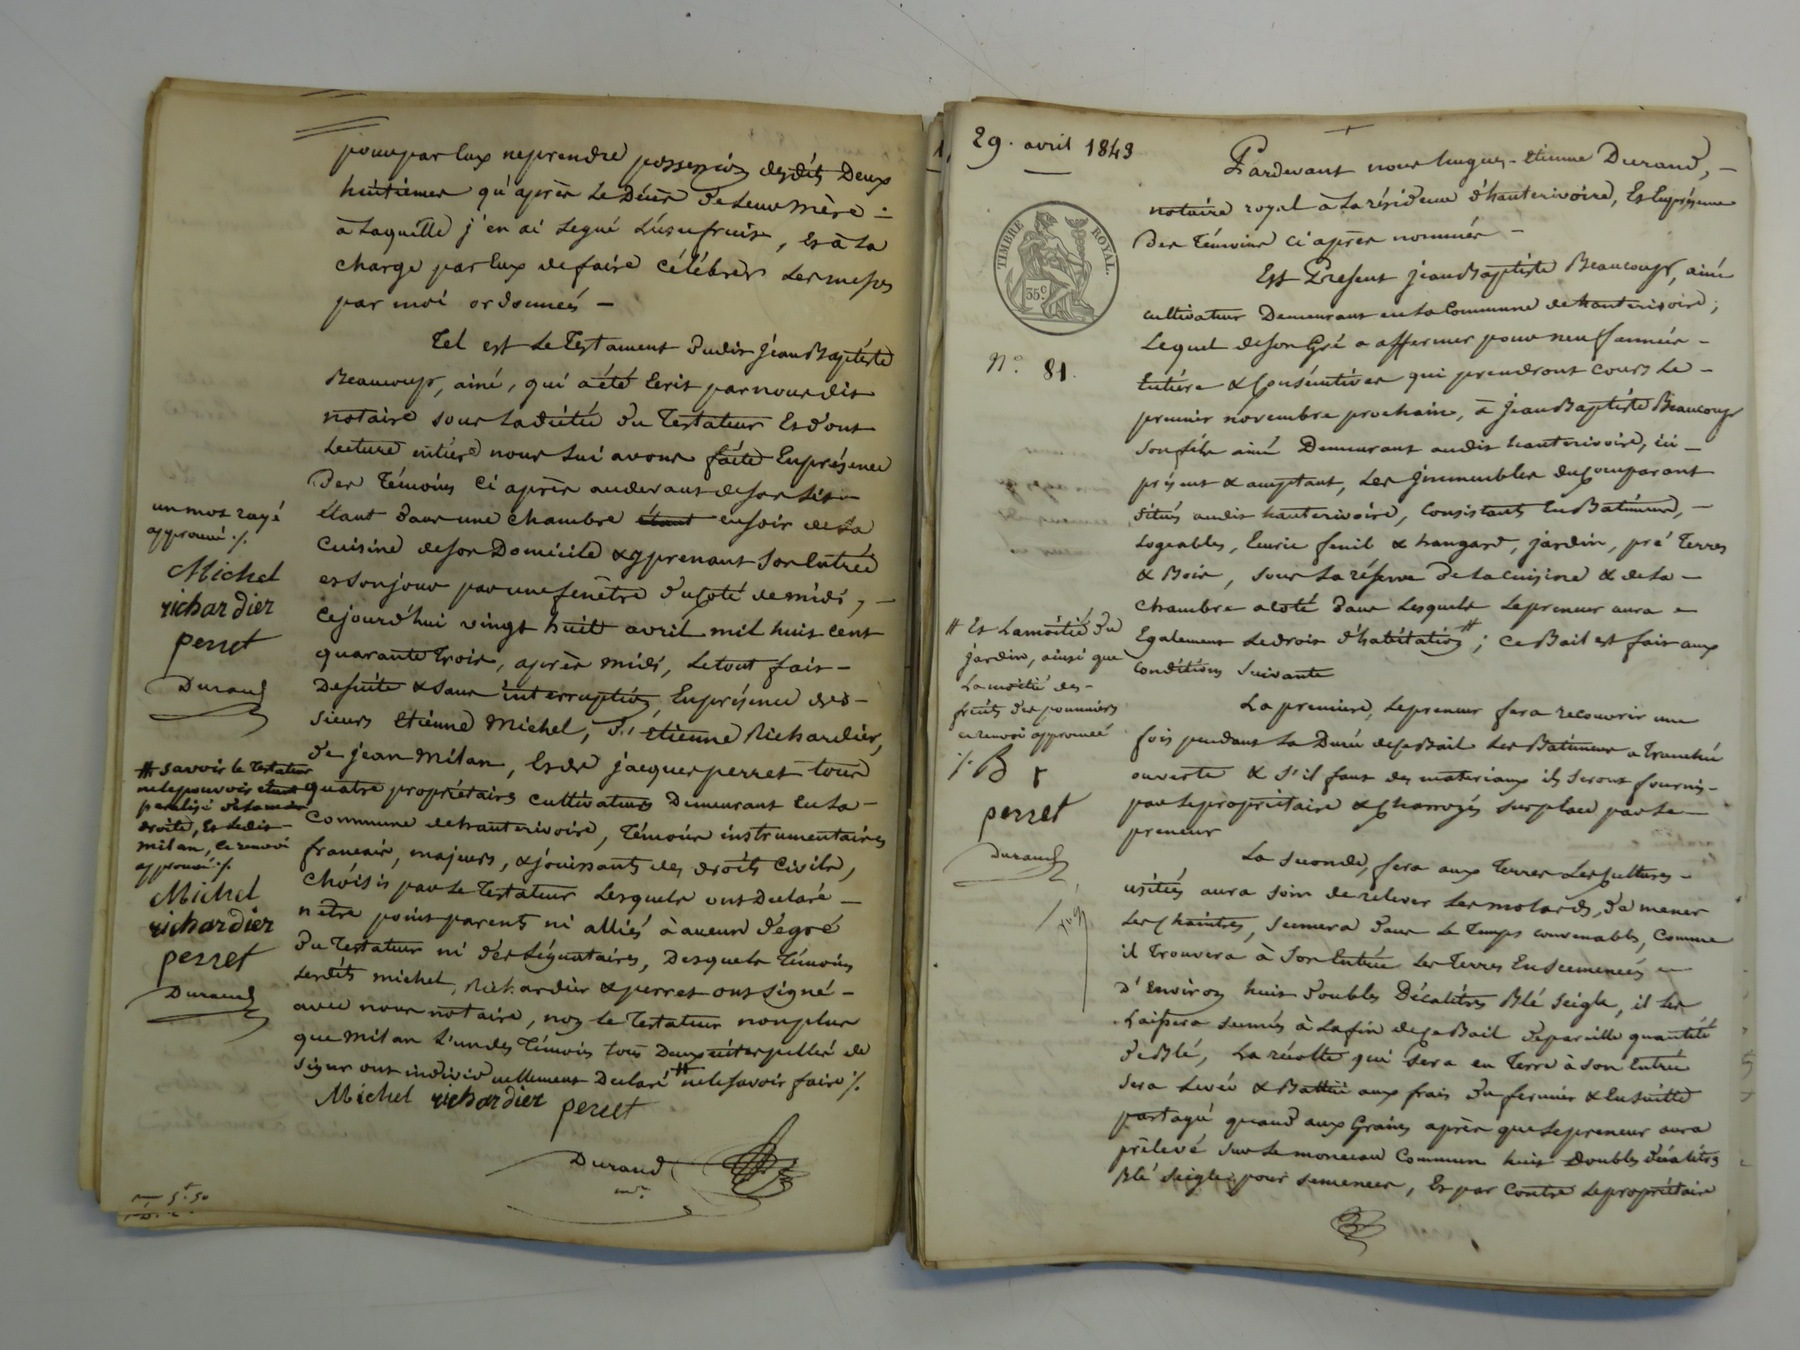 pour par eux ne prendre possession desdits Deux
huitièmes qu'après le Décès de leur mère =
à laquelle j'en ai légué l'usufruit, et à la
charge par eux de faire célébrer les messes
par moi ordonnées —
Tel est le Testament dudit jean Baptiste
Beaucoup, ainé, qui a été écrit par nous dit
notaire sous la dictée du Testateur et dont
Lecture entière nous lui avons faite En présence
Des Témoins ci après au devant de son lit —
étant dans une chambre étant en soir de la
cuisine de son Domicile & y prenant son Entrée
et son jour par une fenêtre du coté de midi, —
cejourd'hui vingt huit avril mil huit cent
quarante trois, après midi, le tout fait —
De suite & sans interruption, En présence des —
sieurs Etienne Michel, Etienne Richardier,
de jean Milan, et de jacques perret tous
quatre propriétaires cultivateurs Demeurant En la —
commune de hauterivoire, Témoins instrumentaires
francais, majeurs, & jouissants des droits civils,
choisis par le Testateur Lesquels ont Déclaré —
n'être point parents ni alliés à aucun dégré
du Testateur ni des Légataires, Desquels Témoins
lesdits michel, Richardier & perret ont signé —
avec nous notaire, non le Testateur non plus
que Milan l'un des Témoins tous Deux interpellés de
signer ont individuellement Déclaré # ne le savoir faire ./.
Michel richardier perret
Durand
un mot rayé
approuvé ./.
Michel
richardier
perret
Durand
# savoir le Testateur
ne le pouvoir étant
paralisé de la main
droite, Et ledit —
milan, ce renvoi
approuvé ./.
Michel
richardier
perret
Durand
5f 50
29. avril 1843
TIMBRE ROYAL.
35c
N.o 81.
Pardevant nous hugues-etienne Durand, —
notaire royal à la résidence d'hauterivoire, Et En présence
Des Témoins ci après nommés —
Est Présent jean Baptiste Beaucoup, ainé
cultivateur Demeurant en la Commune de hauterivoire;
Lequel de son Gré a affermer pour neuf années —
Entière & Consécutives qui prendront cours le —
premier novembre prochain, à jean Baptiste Beaucoup
son fils ainé Demeurant audit hauterivoire, ici —
présent & acceptant, Les jmmeubles du comparant
situés audit hauterivoire, Consistants En Batiments, —
Logeables, Ecurie fenil & hangard, jardin, pré Terres
& Bois, sous la réserve de la cuisine & de la —
chambre a coté dans lesquels le preneur aura —
Egalement le droit d'habitation #; ce Bail est fait aux
conditions suivante
La premiere, le preneur fera recouvrir une
fois pendant la Durée de ce Bail les Batiments a tranchée
ouverte & s'il faut des materiaux ils seront fournis —
par le propriétaire & charroyés sur place par le —
preneur
La seconde, fera aux Terres les Cultures —
usitées aura soin de relever les molards, d'é mener
les chaintres, semera dans le temps convenables, comme
il trouvera à son Entrée les Terres Ensemencées —
D'Environ huit Doubles Décalitres Blé seigle, il les
laissera semés à la fin de ce Bail de pareille quantité
de Blé, La récolte qui sera en Terre à son Entrée
sera levée & Battue aux frais du fermier & En suitte
partagé quand aux Grains après que le preneur aura
prélevé sur le monceau commun huit Doubles décalitres
Blé seigle pour semences, Et par contre le propriétaire
# Et la moitié du
jardin, ainsi que
la moitié des —
fruits des pommiers
ce renvoi approuvé
./. B r
perret
Durand